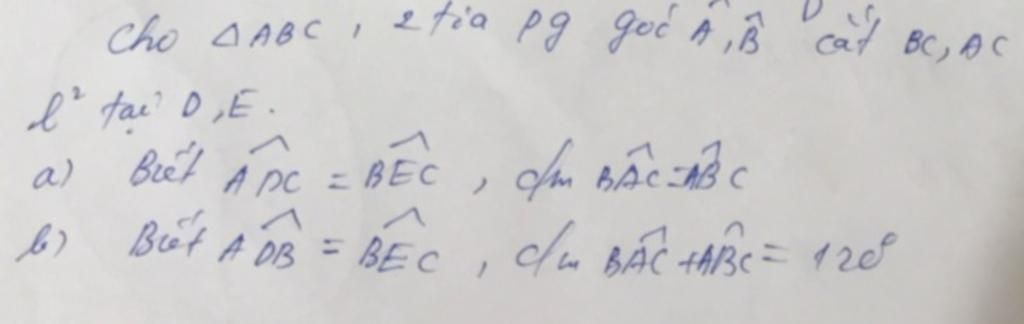 Cho △ABC, 2 tia pg góc Â, B̂ cắt BC, AC
l² tại D, E.
a) Biết ADC^ = BEC^, c/m BAC^ = ABC^
b) Biết ADB^ = BEC^, c/m BAC^ + ABC^ = 120°